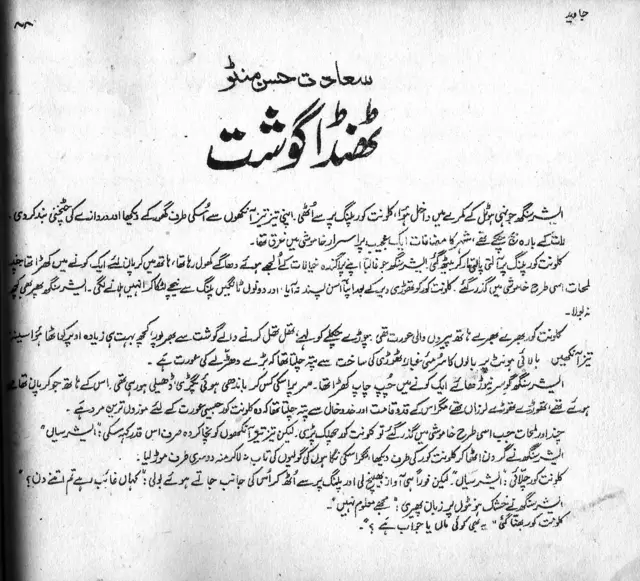 جاوید
سعادت حسن منٹو
ٹھنڈا گوشت
ایشر سنگھ جونہی ہوٹل کے کمرے میں داخل ہوا، کلونت کور پلنگ پر سے اُٹھی۔ اپنی تیز تیز آنکھوں سے اُسکی طرف گھور کے دیکھا اور دروازے کی چٹخنی بند کردی۔
رات کے بارہ بج چکے تھے، شہر کا مضافات ایک عجیب پراسرار خاموشی میں غرق تھا۔
کلونت کور پلنگ پر آلتی پالتی مار کر بیٹھ گئی۔ ایشر سنگھ جو غالباً اپنے پراگندہ خیالات کے الجھے ہوئے دھاگے کھول رہا تھا، ہاتھ میں کرپان لئے ایک کونے میں کھڑا تھا۔ چند
لمحات اسی طرح خاموشی میں گذر گئے۔ کلونت کور کو تھوڑی دیر کے بعد اپنا آسن پسند نہ آیا۔ اور وہ دونوں ٹانگیں پلنگ سے نیچے لٹکا کر انہیں ہلانے لگی۔ ایشر سنگھ پھر بھی کچھ
نہ بولا۔
کلونت کور بھرے بھرے ہاتھ پیروں والی عورت تھی۔ چوڑے چکلے کولہے، تھل تھل کرنے والے گوشت سے بھرپور، کچھ بہت ہی زیادہ اوپر کو اٹھا ہوا سینہ
تیز آنکھیں بالائی ہونٹ پر بالوں کا سرمئی غبار، ٹھوڑی کی ساخت سے پتہ چلتا تھا کہ بڑے دھڑلے کی عورت ہے۔
ایشر سنگھ گو سر نیوڑھائے ایک کونے میں چپ چاپ کھڑا تھا۔ سر پر اسکی کس کر باندھی ہوئی پگڑی ڈھیلی ہو رہی تھی۔ اس کے ہاتھ جو کرپان تھامے
ہوئے تھے تھوڑے تھوڑے لرزاں تھے مگر اس کے قد و قامت اور خد و خال سے پتہ چلتا تھا کہ وہ کلونت کور جیسی عورت کے لئے موزوں ترین مرد ہے۔
چند اور لمحات جب اسی طرح خاموشی میں گذر گئے تو کلونت کور چھلک پڑی۔ لیکن تیز تیز آنکھوں کو نچا کر وہ صرف اس قدر کہہ سکی: "ایشر سیاں"
ایشر سنگھ نے گردن اٹھا کر کلونت کور کی طرف دیکھا، مگر اسکی نگاہوں کی گولیوں کی تاب نہ لا کر منہ دوسری طرف موڑ لیا۔
کلونت کور چلائی: "ایشر سیاں" لیکن فوراً ہی آواز بھینچ لی اور پلنگ پر سے اُٹھ کر اُس کی جانب جاتے ہوئے بولی: "کہاں غائب رہے تم اتنے دن؟"
ایشر سنگھ نے خشک ہونٹوں پر زبان پھیری: "مجھے معلوم نہیں"۔
کلونت کور بھنا گئی "یہ بھی کوئی ماں یا جواب ہے؟"۔